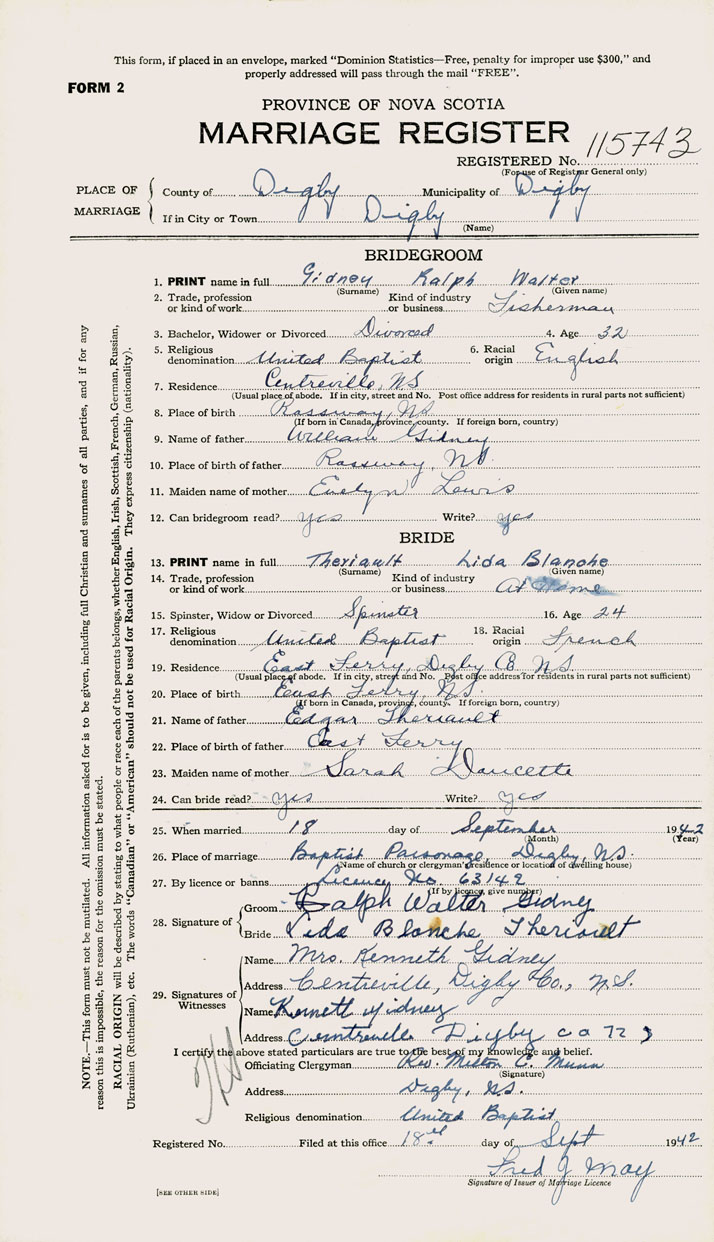 This form, if placed in an envelope, marked "Dominion Statistics—Free, penalty for improper use $300," and
properly addressed will pass through the mail "FREE".
FORM 2
PROVINCE OF NOVA SCOTIA
MARRIAGE REGISTER
REGISTERED No. 115743
(For use of Registrar General only)
PLACE OF MARRIAGE
County of Digby Municipality of Digby
If in City or Town Digby
(Name)
BRIDEGROOM
1. PRINT name in full Gidney Ralph Walter
(Surname) (Given name)
2. Trade, profession or kind of work Kind of industry or business Fisherman
3. Bachelor, Widower or Divorced Divorced 4. Age 32
5. Religious denomination United Baptist 6. Racial origin English
7. Residence Centreville, NS
(Usual place of abode. If in city, street and No. Post office address for residents in rural parts not sufficient)
8. Place of birth Rossway, NS
(If born in Canada, province, county. If foreign born, country)
9. Name of father William Gidney
10. Place of birth of father Rossway, NS.
11. Maiden name of mother Evelyn Lewis
12. Can bridegroom read? yes Write? yes
BRIDE
13. PRINT name in full Theriault Lida Blanche
(Surname) (Given name)
14. Trade, profession or kind of work Kind of industry or business At Home
15. Spinster, Widow or Divorced Spinster 16. Age 24
17. Religious denomination United Baptist 18. Racial origin French
19. Residence East Ferry, Digby Co. NS
(Usual place of abode. If in city, street and No. Post office address for residents in rural parts not sufficient)
20. Place of birth East Ferry, NS.
(If born in Canada, province, county. If foreign born, country)
21. Name of father Edgar Theriault
22. Place of birth of father East Ferry
23. Maiden name of mother Sarah Doucette
24. Can bride read? yes Write? yes
25. When married 18 day of September 1942
(Month) (Year)
26. Place of marriage Baptist Parsonage, Digby, NS.
(Name of church or clergyman's residence or location of dwelling house)
27. By licence or banns Licence No. 63149
(If by licence, give number)
28. Signature of
Groom Ralph Walter Gidney
Bride Lida Blanche Theriault
29. Signatures of Witnesses
Name Mrs. Kenneth Gidney
Address Centreville, Digby Co., N.S.
Name Kennett Gidney
Address Centreville Digby co
I certify the above stated particulars are true to the best of my knowledge and belief.
Officiating Clergyman Rev. Milton C. Munn
(Signature)
Address Digby, N.S.
Religious denomination United Baptist
Registered No. Filed at this office 18th day of Sept 1942
Fred J May
Signature of Issuer of Marriage Licence
[SEE OTHER SIDE]
NOTE.—This form must not be mutilated. All information asked for is to be given, including full Christian and surnames of all parties, and if for any
reason this is impossible, the reason for the omission must be stated.
RACIAL ORIGIN will be described by stating to what people or race each of the parents belongs, whether English, Irish, Scottish, French, German, Russian,
Ukrainian (Ruthenian), etc. The words "Canadian" or "American" should not be used for Racial Origin. They express citizenship (nationality).